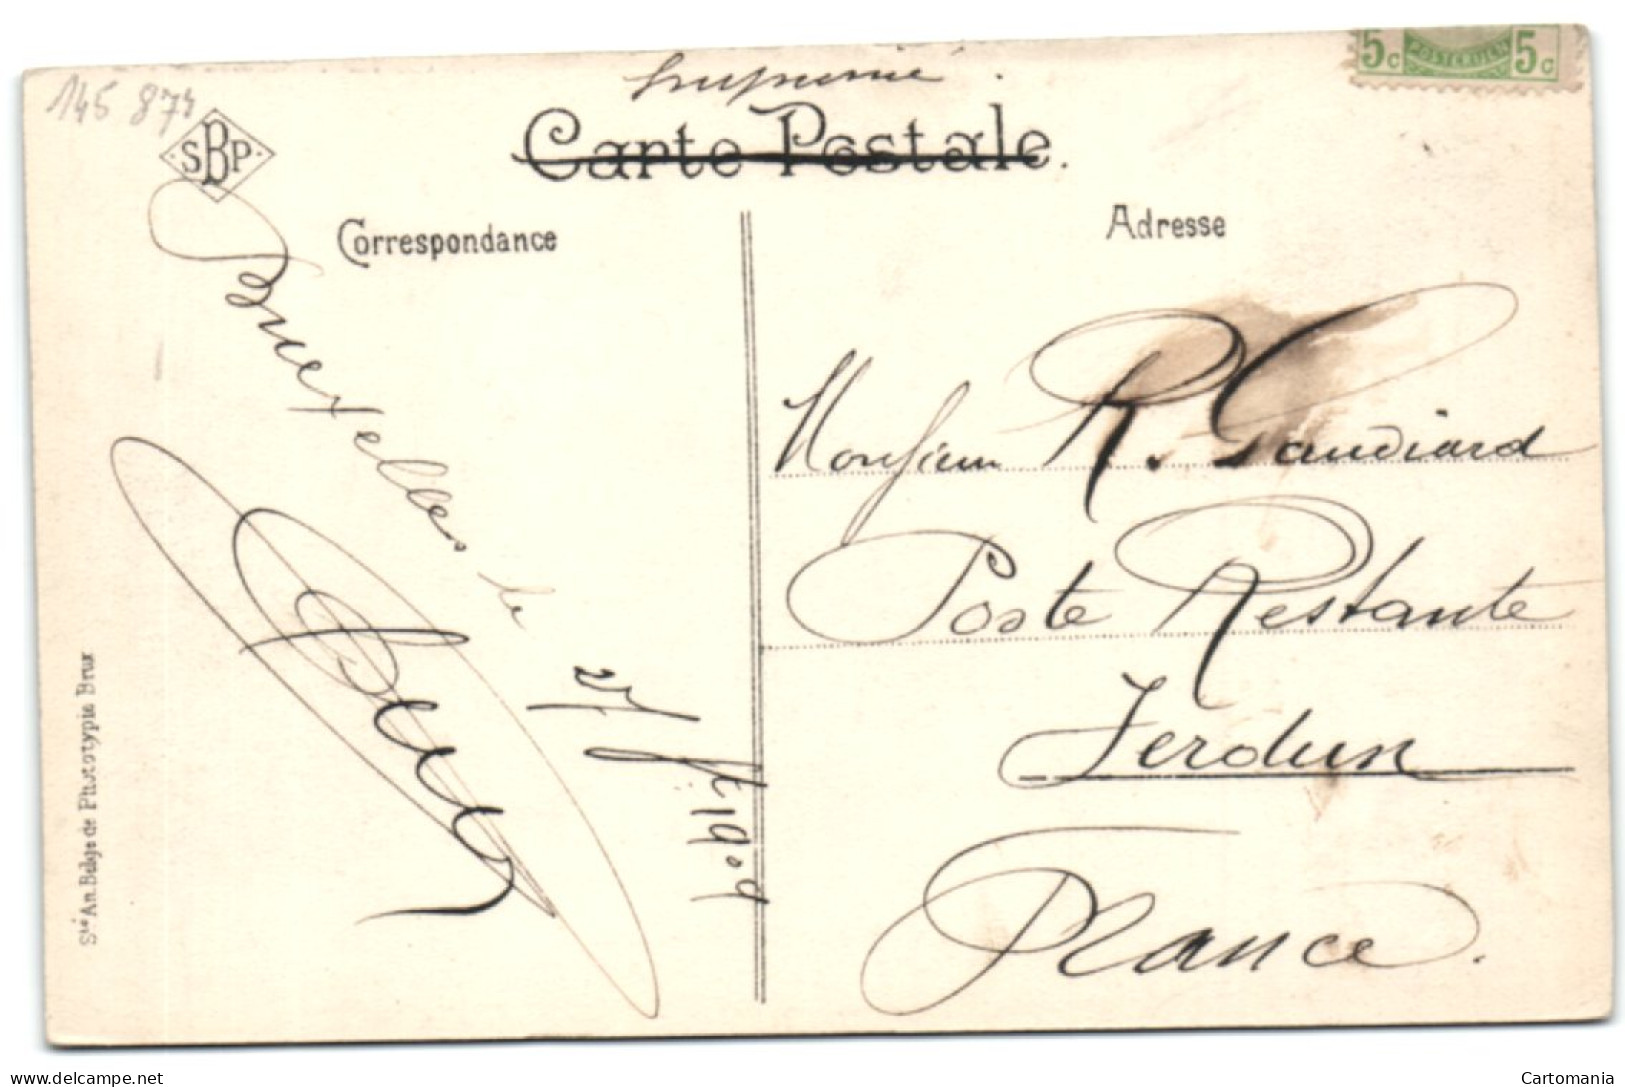 Imprimé.
145 874
5c POSTERIJEN 5c
SBP
Carte Postale.
Correspondance
Adresse
Bruxelles le
27/ 1909
Monsieur R. Gaudiard
Poste Restante
Verdun
France.
Sté An. Belge de Phototypie Brux
delcampe.net
Cartomania